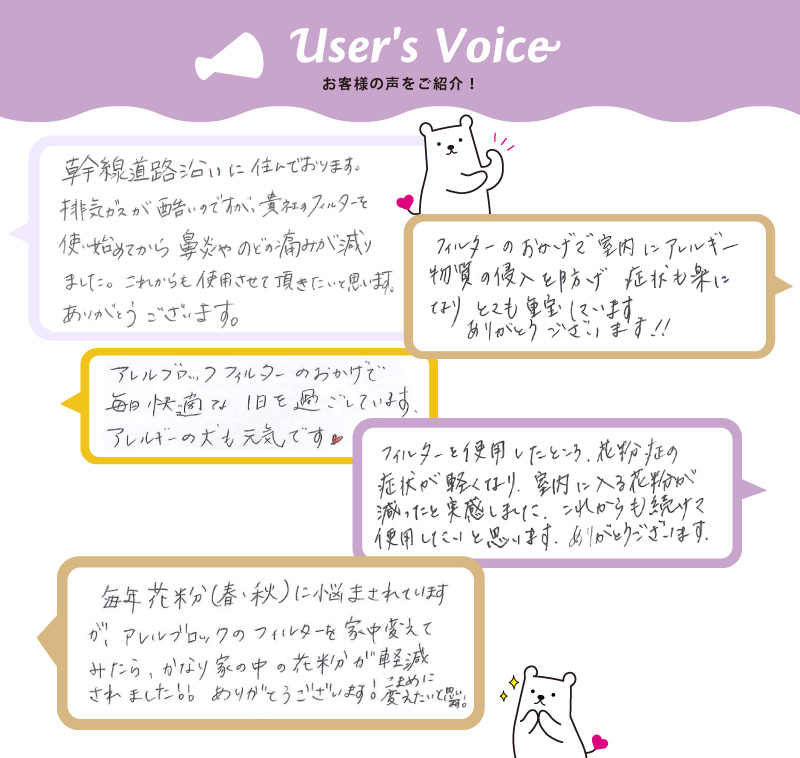 User's Voice
お客様の声をご紹介！
幹線道路沿いに住んでおります。
排気ガスが酷いのですが、貴社のフィルターを
使い始めてから鼻炎やのどの痛みが減り
ました。これからも使用させて頂きたいと思います。
ありがとうございます。
フィルターのおかげで室内にアレルギー
物質の侵入を防げ 症状も楽に
なり とても重宝しています
ありがとうございます!!
アレルブロックフィルターのおかげで
毎日快適な1日を過ごしています。
アレルギーの犬も元気です
フィルターを使用したところ、花粉症の
症状が軽くなり、室内に入る花粉が
減ったと実感しました。これからも続けて
使用したいと思います。ありがとうございます。
毎年花粉(春、秋)に悩まされています
が、アレルブロックのフィルターを家中変えて
みたら、かなり家の中の花粉が軽減
されました!! ありがとうございます!
こまめに
変えたいと思い
ます。